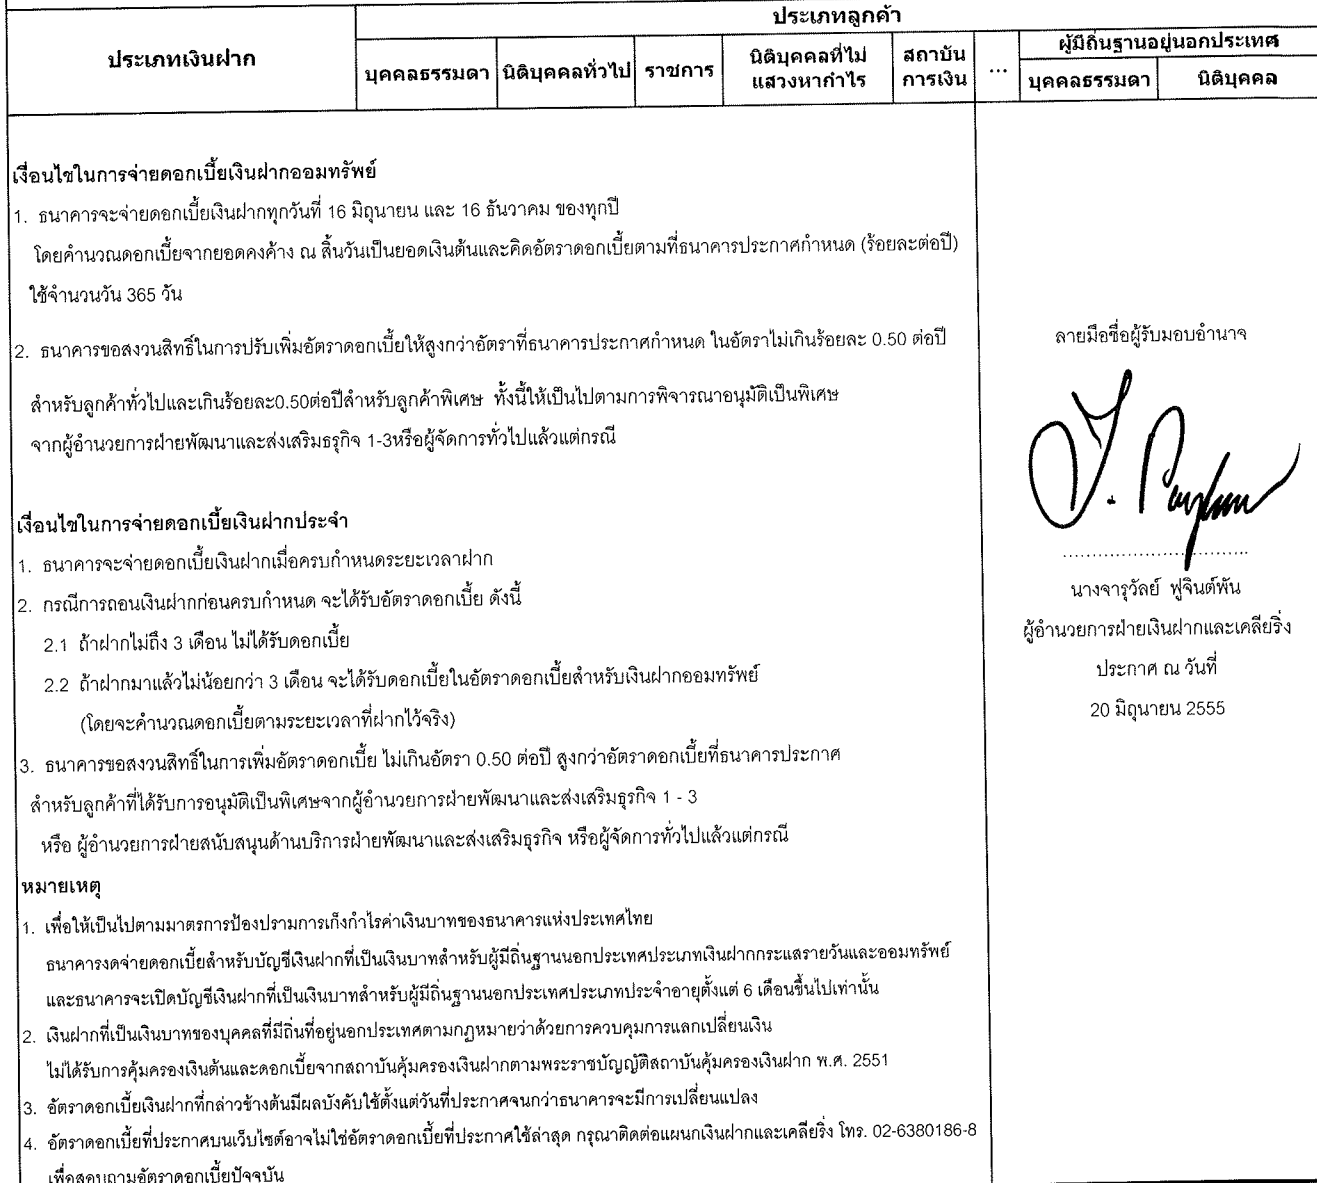 ประเภทลูกค้า
ประเภทเงินฝาก
บุคคลธรรมดา
นิติบุคคลทั่วไป
ราชการ
นิติบุคคลที่ไม่
แสวงหากำไร
สถาบัน
การเงิน
...
ผู้มีถิ่นฐานอยู่นอกประเทศ
บุคคลธรรมดา
นิติบุคคล
เงื่อนไขในการจ่ายดอกเบี้ยเงินฝากออมทรัพย์
1. ธนาคารจะจ่ายดอกเบี้ยเงินฝากทุกวันที่ 16 มิถุนายน และ 16 ธันวาคม ของทุกปี
โดยคำนวณดอกเบี้ยจากยอดคงค้าง ณ สิ้นวันเป็นยอดเงินต้นและคิดอัตราดอกเบี้ยตามที่ธนาคารประกาศกำหนด (ร้อยละต่อปี)
ใช้จำนวนวัน 365 วัน
2. ธนาคารขอสงวนสิทธิ์ในการปรับเพิ่มอัตราดอกเบี้ยให้สูงกว่าอัตราที่ธนาคารประกาศกำหนด ในอัตราไม่เกินร้อยละ 0.50 ต่อปี
สำหรับลูกค้าทั่วไปและเกินร้อยละ0.50ต่อปีสำหรับลูกค้าพิเศษ ทั้งนี้ให้เป็นไปตามการพิจารณาอนุมัติเป็นพิเศษ
จากผู้อำนวยการฝ่ายพัฒนาและส่งเสริมธุรกิจ 1-3หรือผู้จัดการทั่วไปแล้วแต่กรณี
เงื่อนไขในการจ่ายดอกเบี้ยเงินฝากประจำ
1. ธนาคารจะจ่ายดอกเบี้ยเงินฝากเมื่อครบกำหนดระยะเวลาฝาก
2. กรณีการถอนเงินฝากก่อนครบกำหนด จะได้รับอัตราดอกเบี้ย ดังนี้
2.1 ถ้าฝากไม่ถึง 3 เดือน ไม่ได้รับดอกเบี้ย
2.2 ถ้าฝากมาแล้วไม่น้อยกว่า 3 เดือน จะได้รับดอกเบี้ยในอัตราดอกเบี้ยสำหรับเงินฝากออมทรัพย์
(โดยจะคำนวณดอกเบี้ยตามระยะเวลาที่ฝากไว้จริง)
3. ธนาคารขอสงวนสิทธิ์ในการเพิ่มอัตราดอกเบี้ย ไม่เกินอัตรา 0.50 ต่อปี สูงกว่าอัตราดอกเบี้ยที่ธนาคารประกาศ
สำหรับลูกค้าที่ได้รับการอนุมัติเป็นพิเศษจากผู้อำนวยการฝ่ายพัฒนาและส่งเสริมธุรกิจ 1 - 3
หรือ ผู้อำนวยการฝ่ายสนับสนุนด้านบริการฝ่ายพัฒนาและส่งเสริมธุรกิจ หรือผู้จัดการทั่วไปแล้วแต่กรณี
หมายเหตุ
1. เพื่อให้เป็นไปตามมาตรการป้องปรามการเก็งกำไรค่าเงินบาทของธนาคารแห่งประเทศไทย
ธนาคารงดจ่ายดอกเบี้ยสำหรับบัญชีเงินฝากที่เป็นเงินบาทสำหรับผู้มีถิ่นฐานนอกประเทศประเภทเงินฝากกระแสรายวันและออมทรัพย์
และธนาคารจะเปิดบัญชีเงินฝากที่เป็นเงินบาทสำหรับผู้มีถิ่นฐานนอกประเทศประเภทประจำอายุตั้งแต่ 6 เดือนขึ้นไปเท่านั้น
2. เงินฝากที่เป็นเงินบาทของบุคคลที่มีถิ่นที่อยู่นอกประเทศตามกฎหมายว่าด้วยการควบคุมการแลกเปลี่ยนเงิน
ไม่ได้รับการคุ้มครองเงินต้นและดอกเบี้ยจากสถาบันคุ้มครองเงินฝากตามพระราชบัญญัติสถาบันคุ้มครองเงินฝาก พ.ศ. 2551
3. อัตราดอกเบี้ยเงินฝากที่กล่าวข้างต้นมีผลบังคับใช้ตั้งแต่วันที่ประกาศจนกว่าธนาคารจะมีการเปลี่ยนแปลง
4. อัตราดอกเบี้ยที่ประกาศบนเว็บไซต์อาจไม่ใช่อัตราดอกเบี้ยที่ประกาศใช้ล่าสุด กรุณาติดต่อแผนกเงินฝากและเคลียริ่ง โทร. 02-6380186-8
เพื่อสอบถามอัตราดอกเบี้ยปัจจุบัน
ลายมือชื่อผู้รับมอบอำนาจ
................................
นางจารุวัลย์ ฟูจินต์พัน
ผู้อำนวยการฝ่ายเงินฝากและเคลียริ่ง
ประกาศ ณ วันที่
20 มิถุนายน 2555